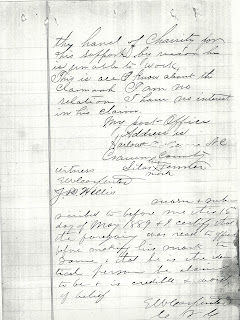 thy hand of Charity for
his support by reason he
is unable to work,
This is all I know about the
claim and I am no
relation I have no interest
in his claim.
My post Office
Address is
Harlowe N.C.
Craven County
Silas Fenter
witness mark
J H Willis
sworn & sub
scribed to before me this
day of May 1889 & I certify that
the foregoing was read to
before making his mark to
same, & that he is the
person he claims
to be & is credible & worthy
of belief
E W Carpenter
C S C